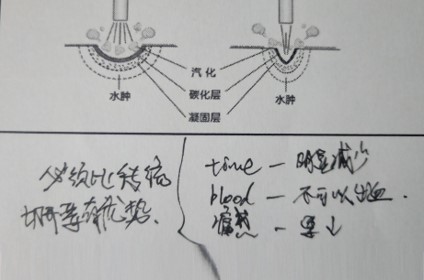 汽化
碳化层
水肿
水肿
凝固层
必须比传统
切除有优势.
time — 明显减少
blood — 不可以出血.
— ↓